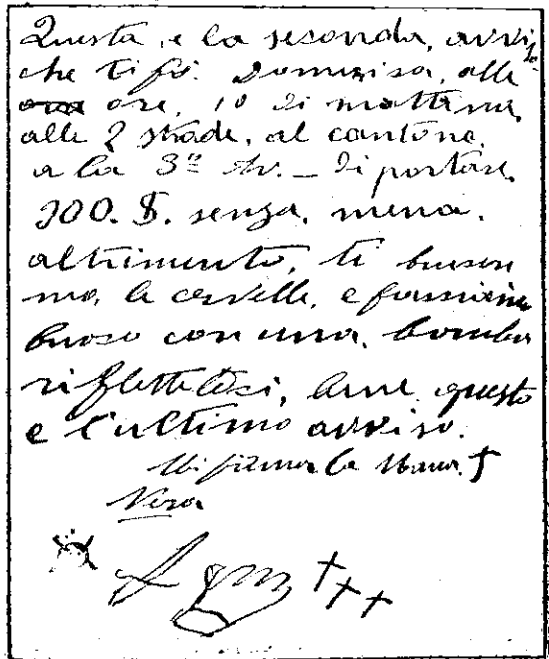 Questa, e la seconda, avviso
che ti fò. Domenica, alle
ore, 10 di mattina,
alle 2 strade, al cantone,
a la 3ª Av. — Di portare.
300. $. senza, meno.
altrimento, ti
mo, le cervelle, e
con una, bomba
bene questo
e l'ultimo avviso.
Mi firmo la Mano. †
Nera
†††